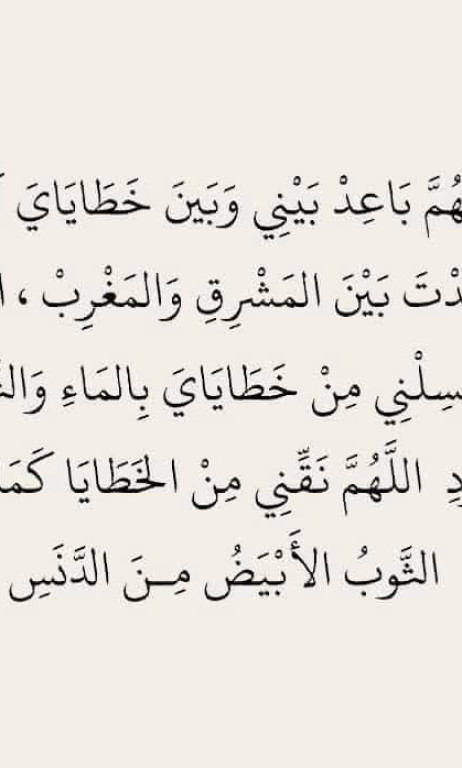 بَاعِدْ بَيْنِي وَبَينَ خَطَايَايَ
بَيْنَ المَشْرِقِ وَالمَغْرِبْ ،
مِنْ خَطَايَايَ بِالمَاءِ
اللَّهُمَّ نَقِّنِي مِنْ الخَطَايَا
الثَّوبُ الأَبْيَضُ مِـنَ الدَّنَسِ